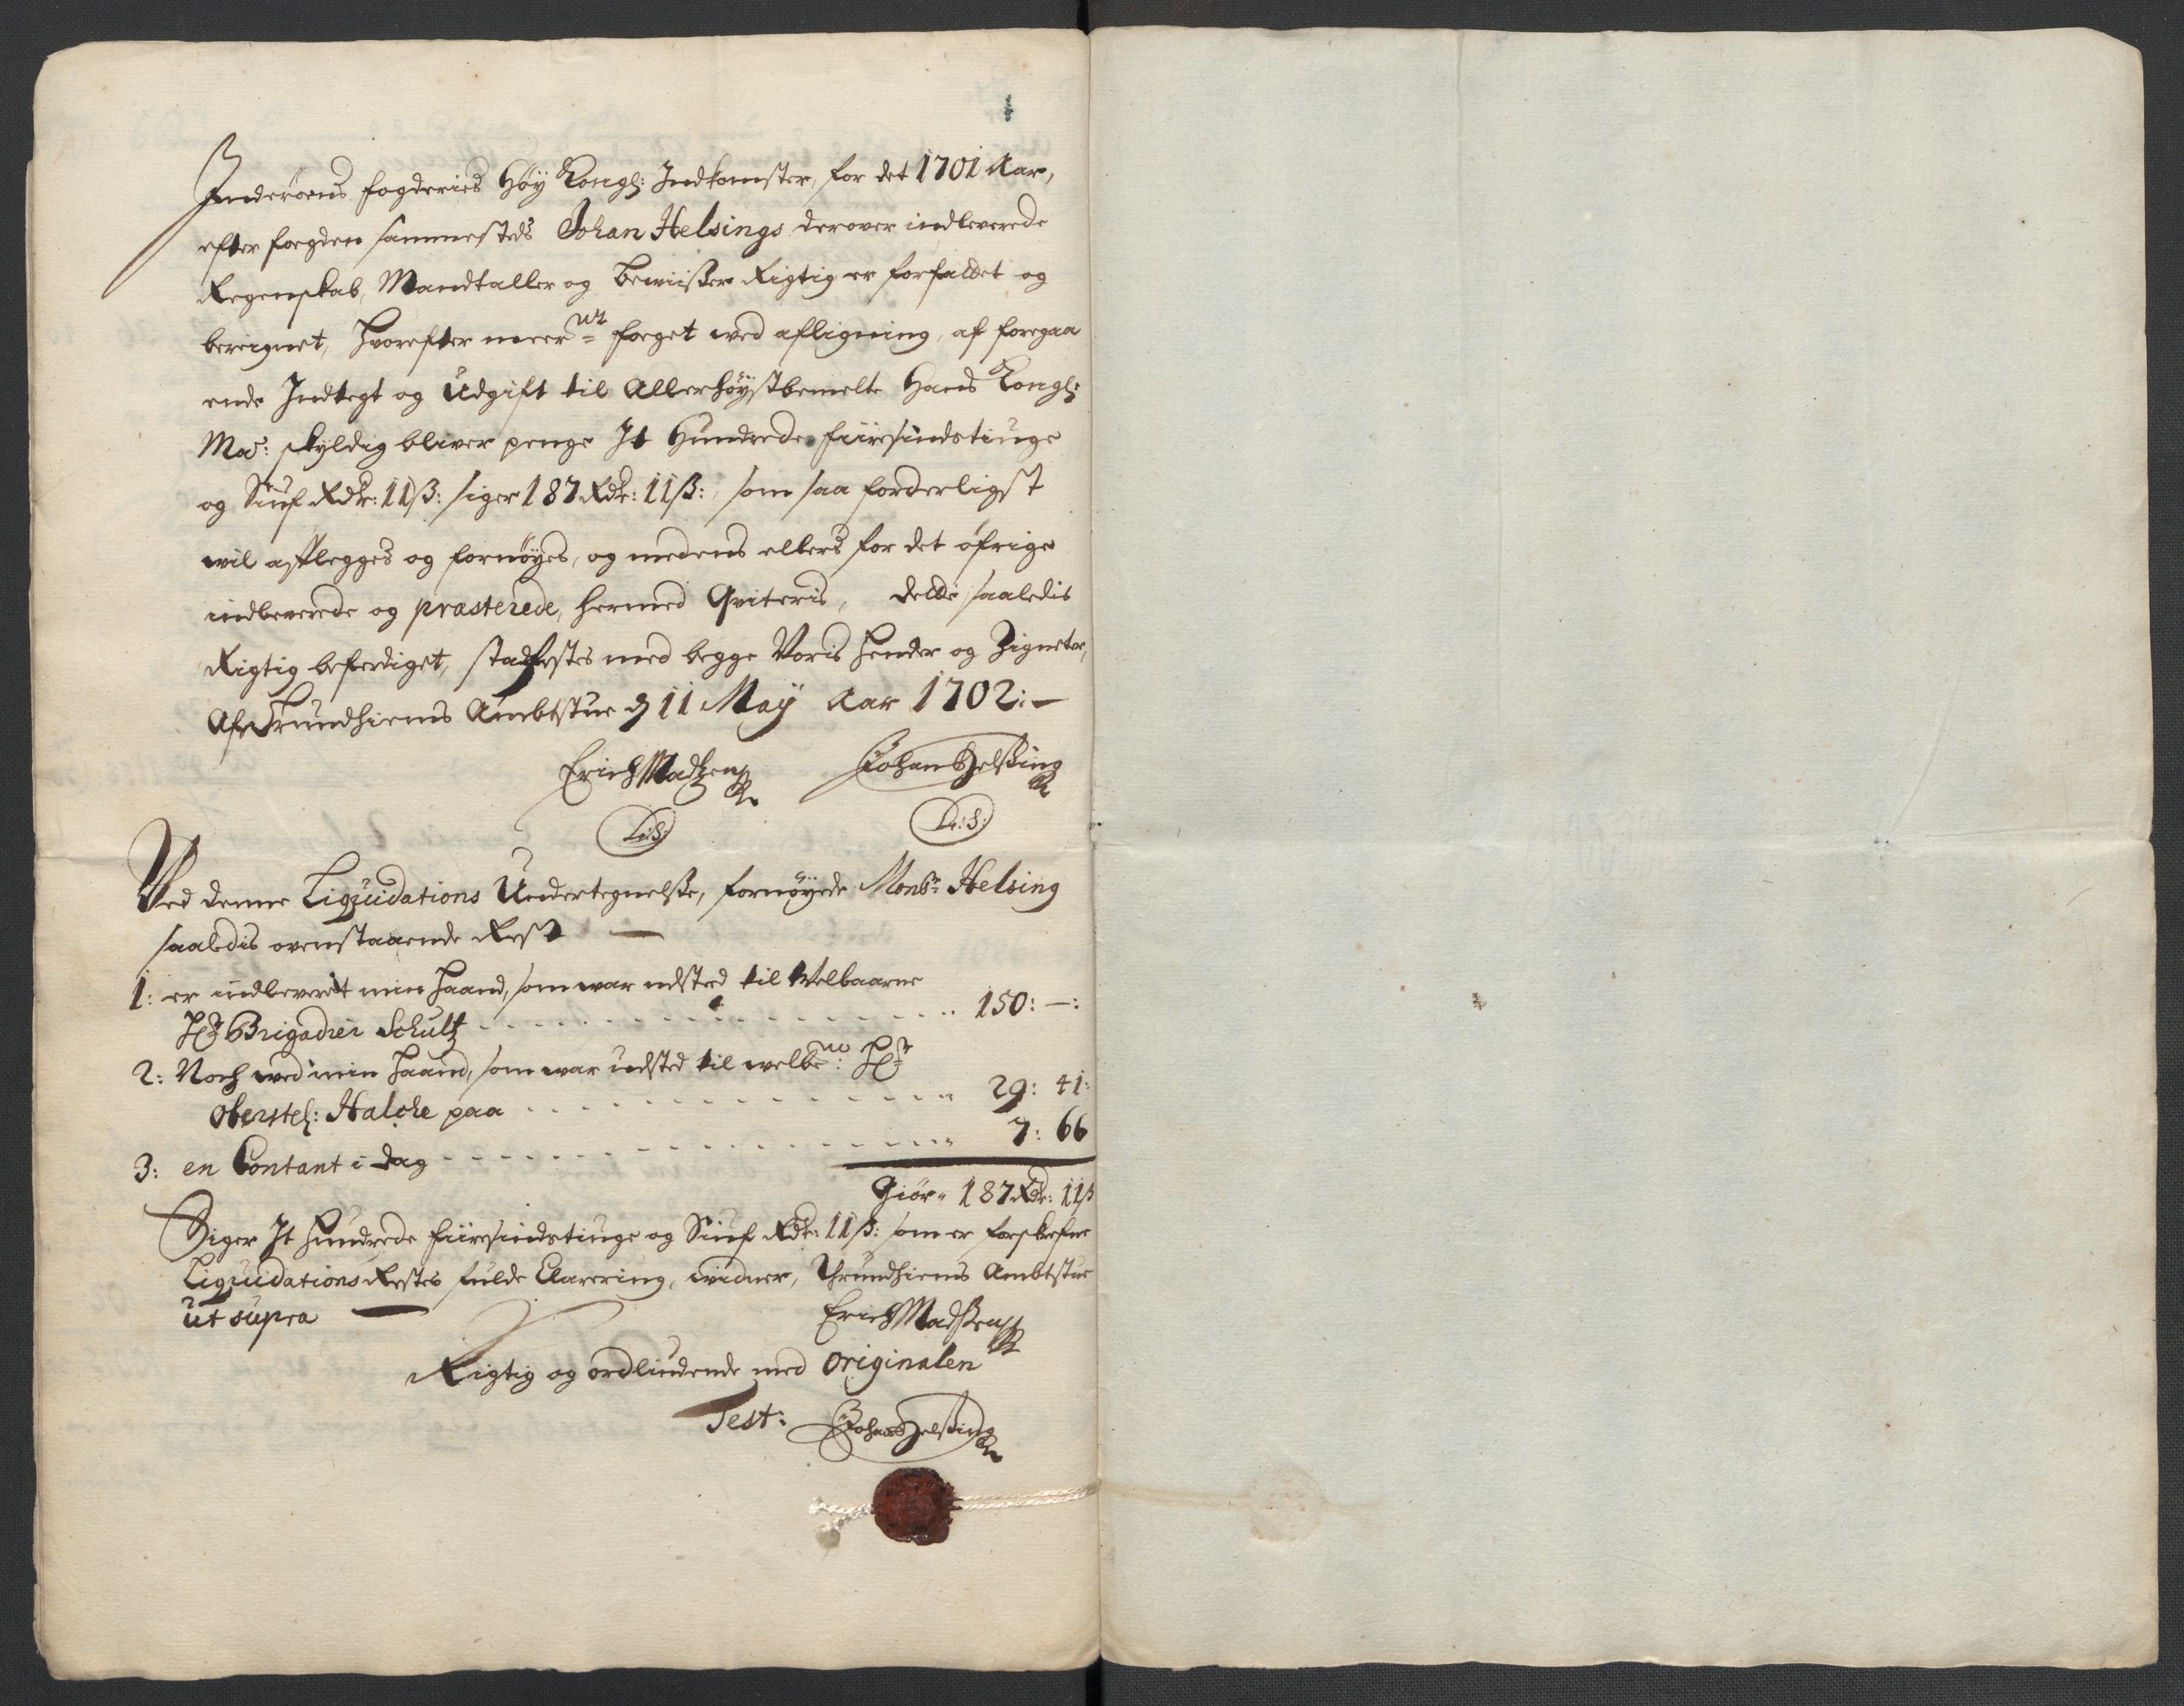 Inderøens fogderies Høy Kongl: Indkomster, for det 1701 Aar,
efter fogden sammesteds Johan Helsings derover indleverede
Regenskab, Mandtaller og beviißer Rigtig er forfaldet og
bereignet, hvorefter meerne foget ved afligning, af foregaa
ende Indtegt og Udgift til Allerhöystbemelte Hans Kongl:
Ma: skyldig bliver penge It Hundrede fiiresindstiuge
og Siuf Rdr: 11 ß: siger 187 Rdr: 11 ß: som saa forderligst
wil afflegges og fornöyes, og medens ellers for det öfrige
indleverede og præsterede, hermed Qviteris, dette saaledis
Rigtig beferdiget, stadfestes med begge Voris Hender og Zigneter,
Af Trundhiems Ambtstue d 11 May Aar 1702:-
Erich Madßen Johan Helsing
L:S: L:S:
Ved denne Liquidations Undertegnelße, fornöyede Monsr Helsing
saaledis ovenstaaende Rest —
1: er indleveret min Haand, som war udsted til Welbaarne
Hr Brigadier Schultz 150: -:
2: Noch ved min Haand, som war udsted til welbne: Hr
Oberstel: Halche paa 29: 41:
3: en Contant i dag 7: 66
Giör 187 Rdr: 11 ß
Siger It Hundrede fiiresindstiuge og Siuf Rdr: 11 ß: som er forskrefne
Liquidations Restes fulde Clarering, vidner, Thrundhiems Ambtstue
ut supra —
Erich Madßen
Rigtig og ordliudende med Originalen
Test: Johan Helsing